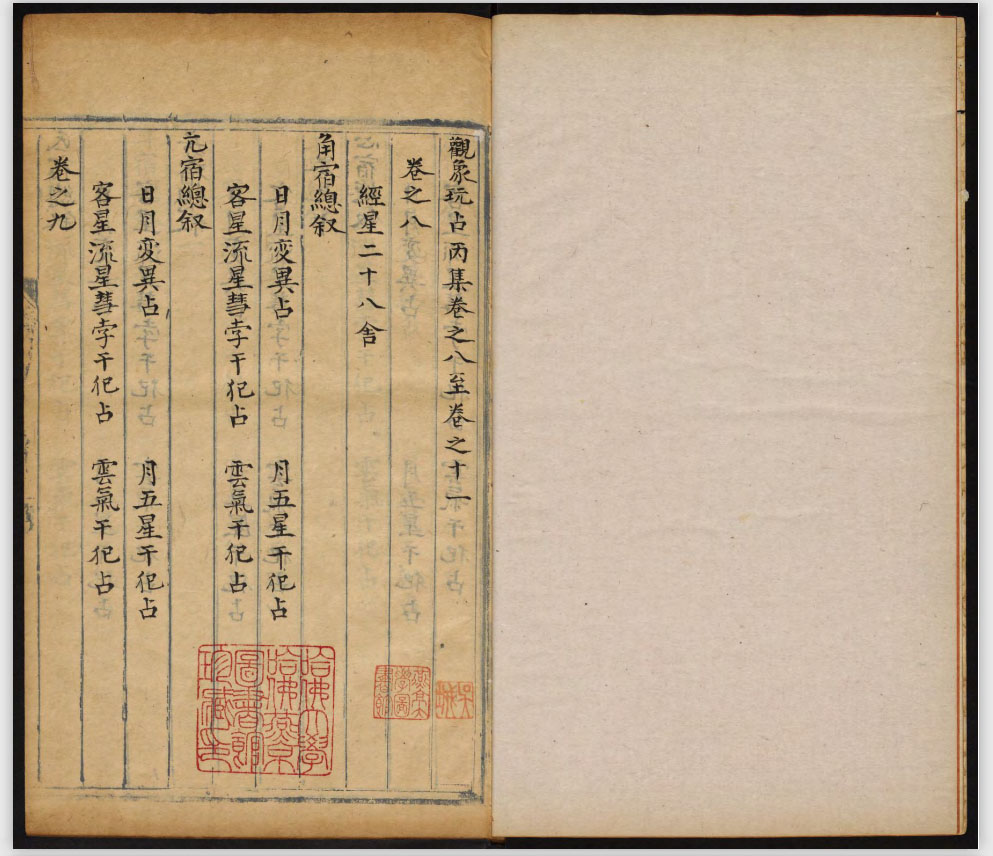 觀象玩占丙集卷之八至卷之十一
卷之八
經星二十八舍
角宿總叙
日月変異占 月五星干犯占
客星流星彗孛干犯占 雲氣干犯占
亢宿總叙
日月変異占 月五星干犯占
客星流星彗孛干犯占 雲氣干犯占
卷之九
哈佛大學
哈佛燕京
圖書館
珍藏印